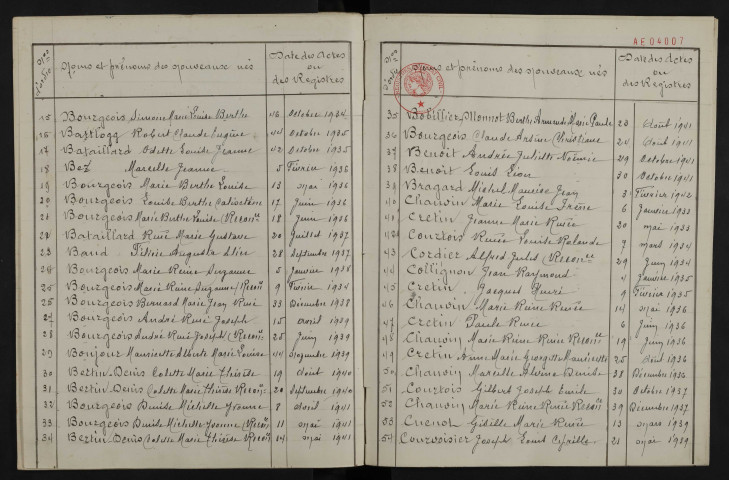 Nos d'ordre Noms et prénoms des nouveaux nés Date des Actes ou des Registres
15 Bourgeois Simone Marie Louise Berthe 16 Octobre 1934
16 Robert Claude Eugène Octobre 1935
17 Bataillard Odette Louise Jeanne 12 Octobre 1935
18 Bez Marcelle Jeanne 5 Février 1936
19 Bourgeois Marie Berthe Louise 13 mai 1936
20 Bourgeois Louise Berthe 17 Juin 1936
21 Bourgeois Marie Berthe Louise 18 Juin 1936
22 Bataillard René Marie Gustave 20 Juillet 1937
23 Baud Augusta 28 Septembre 1937
24 Bourgeois Marie Reine Suzanne 5 Janvier 1938
25 Bourgeois Marie Reine Suzanne 9 Février
25 Bourgeois Bernard Marie Jean René Décembre 1938
27 Bourgeois André René Joseph 15 avril 1939
28 Bourgeois André René Joseph 25 Juin 1939
29 Bonjour Mauricette Alberte Marie Louise novembre 1939
30 Bertin-Denis Colette Marie Thérèse 19 Août 1940
31 Bertin-Denis Colette Marie Thérèse 20 Septembre 1940
32 Bourgeois Denise Michelle Yvonne 8 avril 1941
33 Bourgeois Denise Michelle Yvonne 11 mai 1941
34 Bertin-Denis Colette Marie Thérèse 14 mai 1941
AE04007
Nos d'ordre Noms et prénoms des nouveaux nés Date des Actes ou des Registres
35 Bobillier-Monnot Berthe Armande Marie Paule 23 Août 1941
36 Bourgeois Claude Arsène Christiane 24 Août 1941
37 Benoit Andrée Juliette Noémie 29 Octobre 1941
38 Benoit Louis Léon 30 Octobre 1941
39 Bragard Michel Maurice Jean 3 Février 1942
40 Chauvin Marie Louise Irène 6 Janvier 1933
41 Cretin Jeanne Marie Renée 20 mai 1933
42 Courtois Renée Louise Rolande 7 mars 1934
43 Cordier Alfred Jules 29 Juin 1934
44 Collignon Jean Raymond 4 Janvier 1935
45 Cretin Jacques Henri 9 Février 1935
46 Chauvin Marie Reine Renée 14 mai 1936
47 Cretin Paule Renée 6 Juin 1936
48 Chauvin Marie Reine Renée 19 Juin 1936
49 Cretin Anne Marie Georgette Mauricette 25 Août 1936
50 Chauvin Marcelle Denise 28 Décembre 1936
51 Courtois Gilbert Joseph Emile 30 Octobre 1937
52 Chauvin Marie Reine Renée 29 Décembre 1937
53 Cuenot Gisèle Marie Renée 13 mars 1939
54 Courvoisier Joseph Louis Cyrille 21 mai 1939